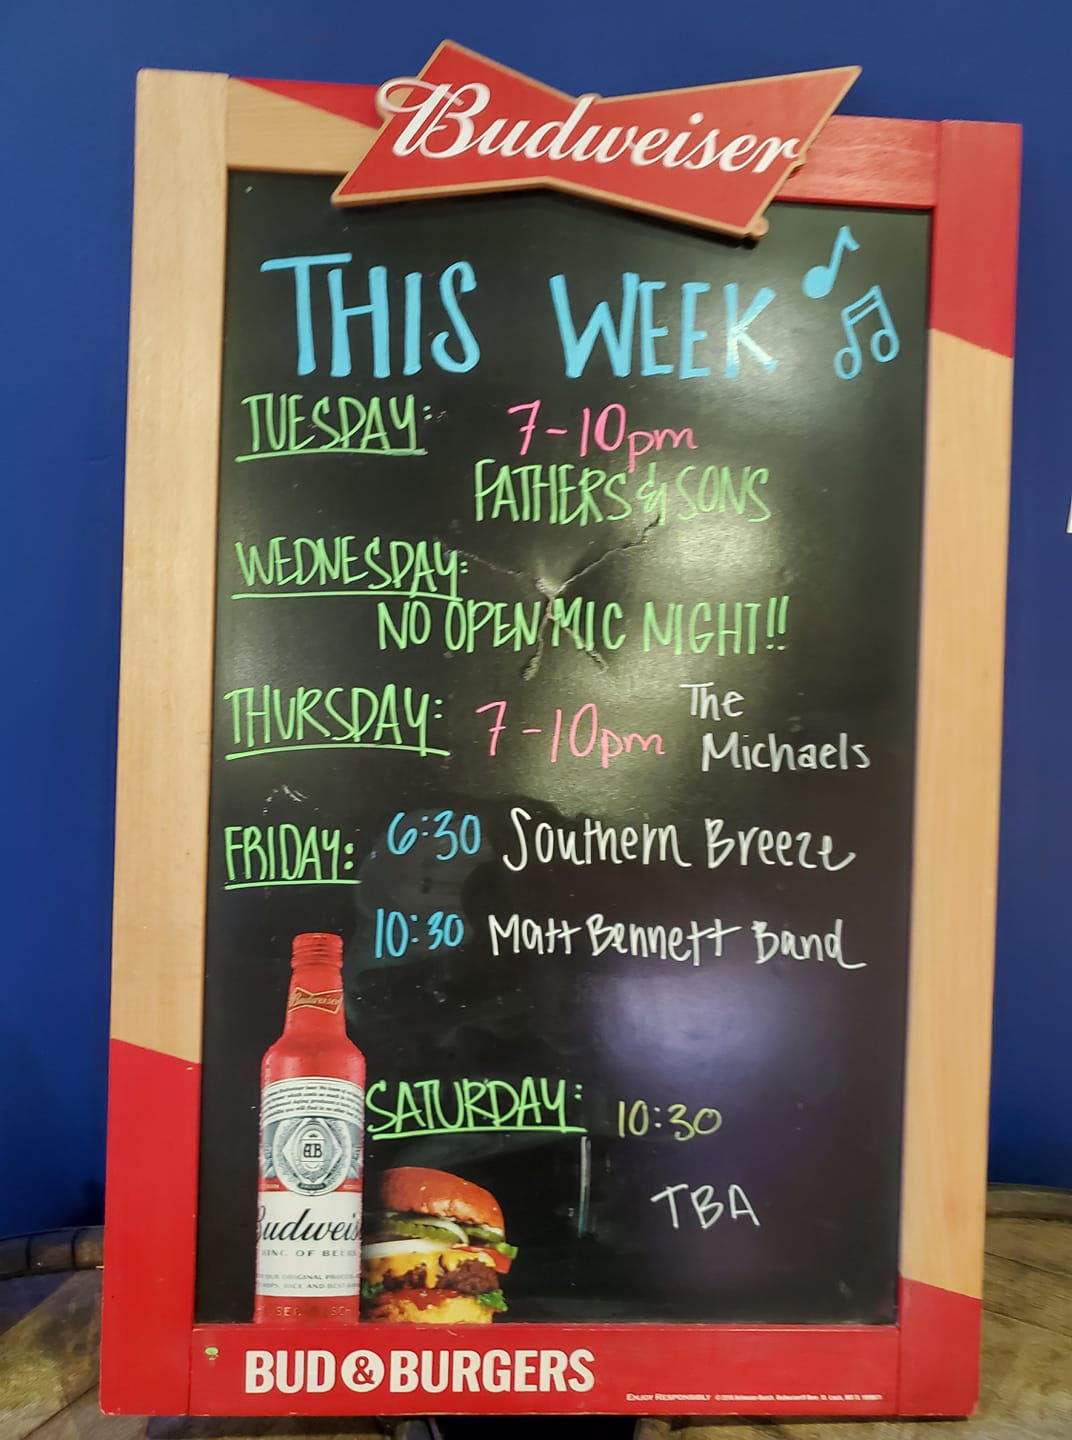 Budweiser
THIS WEEK
TUESDAY: 7-10pm
FATHERS & SONS
WEDNESDAY:
NO OPEN MIC NIGHT!!
THURSDAY: 7-10pm The
Michaels
FRIDAY: 6:30 Southern Breeze
10:30 Matt Bennett Band
SATURDAY: 10:30
TBA
Budweiser
AB
Budweis
KING OF BEERS
BUD & BURGERS
ENJOY RESPONSIBLY